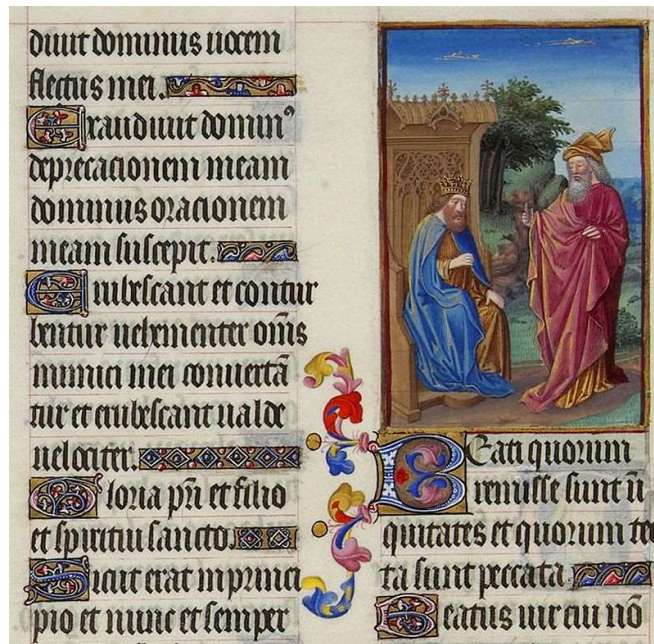 diuit dominus uocem
fletus mei.
Exaudiuit domin⁹
deprecacionem meam
dominus oracionem
meam suscepit.
Erubescant et contur
bentur uehementer om̅s
inimici mei conuertā
tur et erubescant ualde
uelociter.
Gloria pr̅i et filio
et spiritui sancto.
Sicut erat in princi
pio et nunc et semper
Beati quorum
remisse sunt in̅
quitates et quorum tec
ta sunt peccata
Beatus uir cui nō